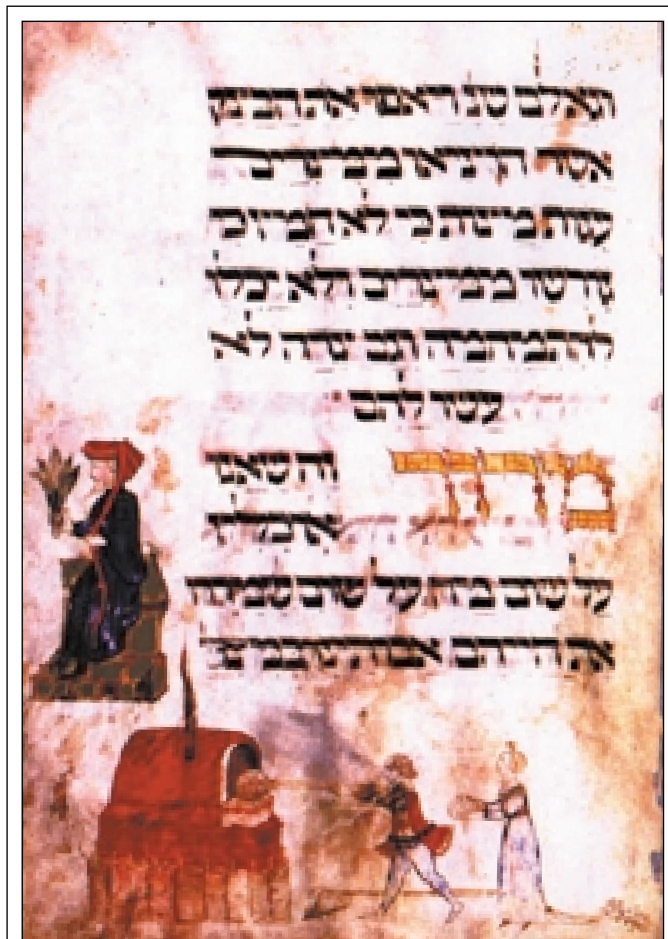 וגאלם שנ ויאפו את הבצק
אשר הוציאו ממצרים
עגות מצות כי לא חמץ כי
גרשו ממצרים ולא יכלו
להתמהמה וגם צדה לא
עשו להם
מרור זה שאנו
אוכלין
על שום מה על שום שמררו
את